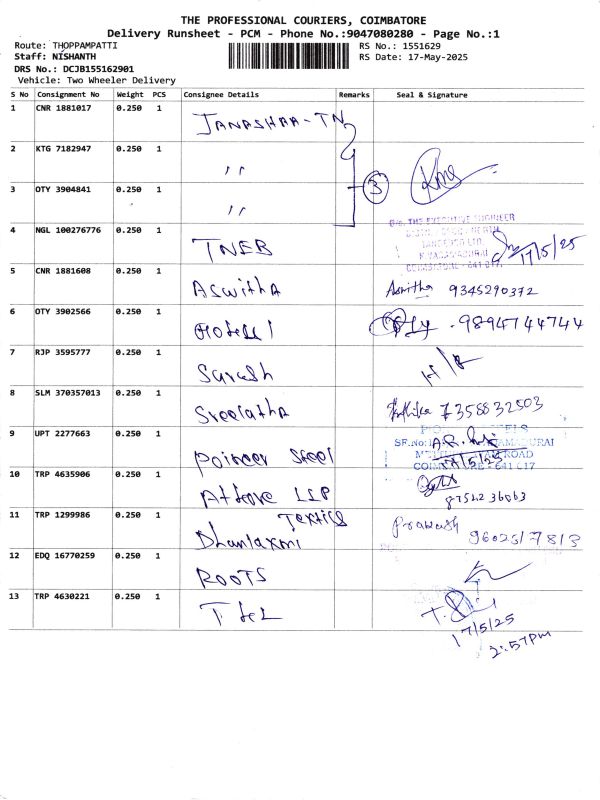 THE PROFESSIONAL COURIERS, COIMBATORE
Delivery Runsheet - PCM - Phone No.:9047080280 - Page No.:1
Route: THOPPAMPATTI
RS No.: 1551629
Staff: NISHANTH
RS Date: 17-May-2025
DRS No.: DCJB155162901
Vehicle: Two Wheeler Delivery
S No Consignment No Weight PCS Consignee Details Remarks Seal & Signature
1 CNR 1881017 0.250 1 JANASHAA-TN
2 KTG 7182947 0.250 1 ,,
3 OTY 3904841 0.250 1 ,, 3
O/o. THE EXECUTIVE ENGINEER
4 NGL 100276776 0.250 1 TNEB 17/5/25
COIMBATORE - 641 017.
5 CNR 1881608 0.250 1 Aswitha 9345290372
6 OTY 3902566 0.250 1 Hotell 9894744744
7 RJP 3595777 0.250 1 Suresh H/B
8 SLM 370357013 0.250 1 Sreelatha 7358832503
9 UPT 2277663 0.250 1 Poineer Steel
SF.No:
ROAD
COIMBATORE - 641 017
10 TRP 4635906 0.250 1 LLP
11 TRP 1299986 0.250 1 Dhanlaxmi Textils Prakash
12 EDQ 16770259 0.250 1 ROOTS
13 TRP 4630221 0.250 1
17/5/25
2:57pm